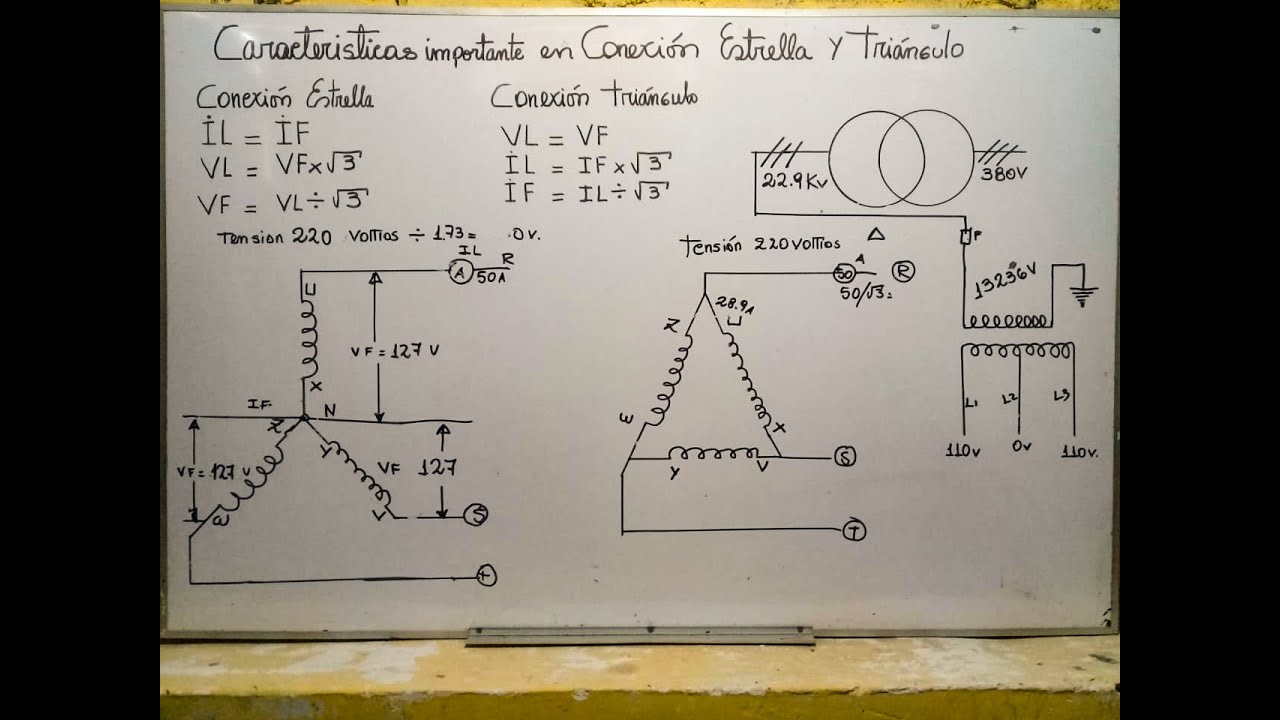 Caracteristicas importante en Conexión Estrella y Triángulo
Conexión Estrella
IL = IF
VL = VF x √3
VF = VL ÷ √3
Tension 220 Voltios ÷ 1.73 = 0v.
IL
A
50A
R
U
VF = 127 V
X
IF.
N
Z
Y
VF = 127 V
VF 127
W
V
S
t
Conexión triángulo
VL = VF
IL = IF x √3
IF = IL ÷ √3
Tensión 220 Voltios Δ
50
A
R
50/√3 =
28.9A
Z
U
W
X
Y
V
S
T
22.9Kv
380V
F
13236V
L1
L2
L3
110v
0v
110v.